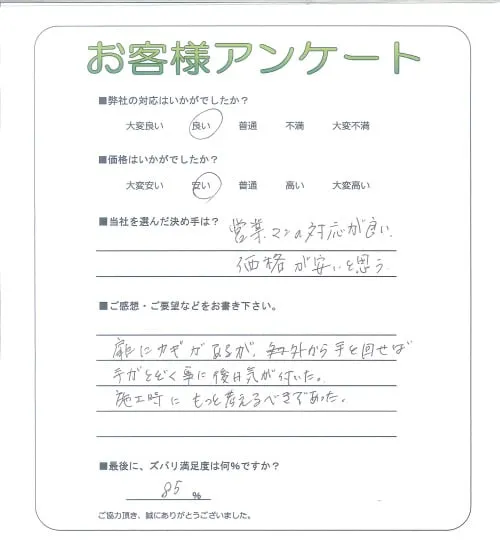 お客様アンケート
■弊社の対応はいかがでしたか？
大変良い 良い 普通 不満 大変不満
■価格はいかがでしたか？
大変安い 安い 普通 高い 大変高い
■当社を選んだ決め手は？ 営業マンの対応が良い.
価格が安いと思う.
■ご感想・ご要望などをお書き下さい。
扉にカギがあるが、外から手を回せば
手がとどく事に後日気が付いた。
施工時にもっと考えるべきであった。
■最後に、ズバリ満足度は何%ですか？
85 %
ご協力頂き、誠にありがとうございました。